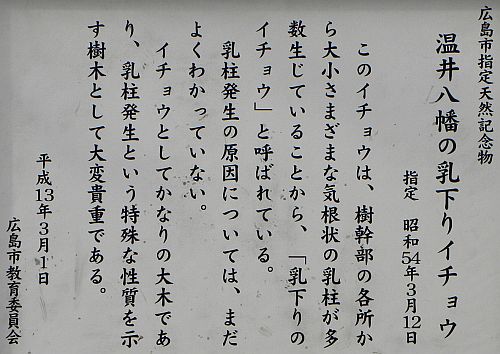 広島市指定天然記念物
温井八幡の乳下りイチョウ
指定 昭和54年3月12日
このイチョウは、樹幹部の各所か
ら大小さまざまな気根状の乳柱が多
数生じていることから、「乳下りの
イチョウ」と呼ばれている。
乳柱発生の原因については、まだ
よくわかっていない。
イチョウとしてかなりの大木であ
り、乳柱発生という特殊な性質を示
す樹木として大変貴重である。
平成13年3月1日
広島市教育委員会